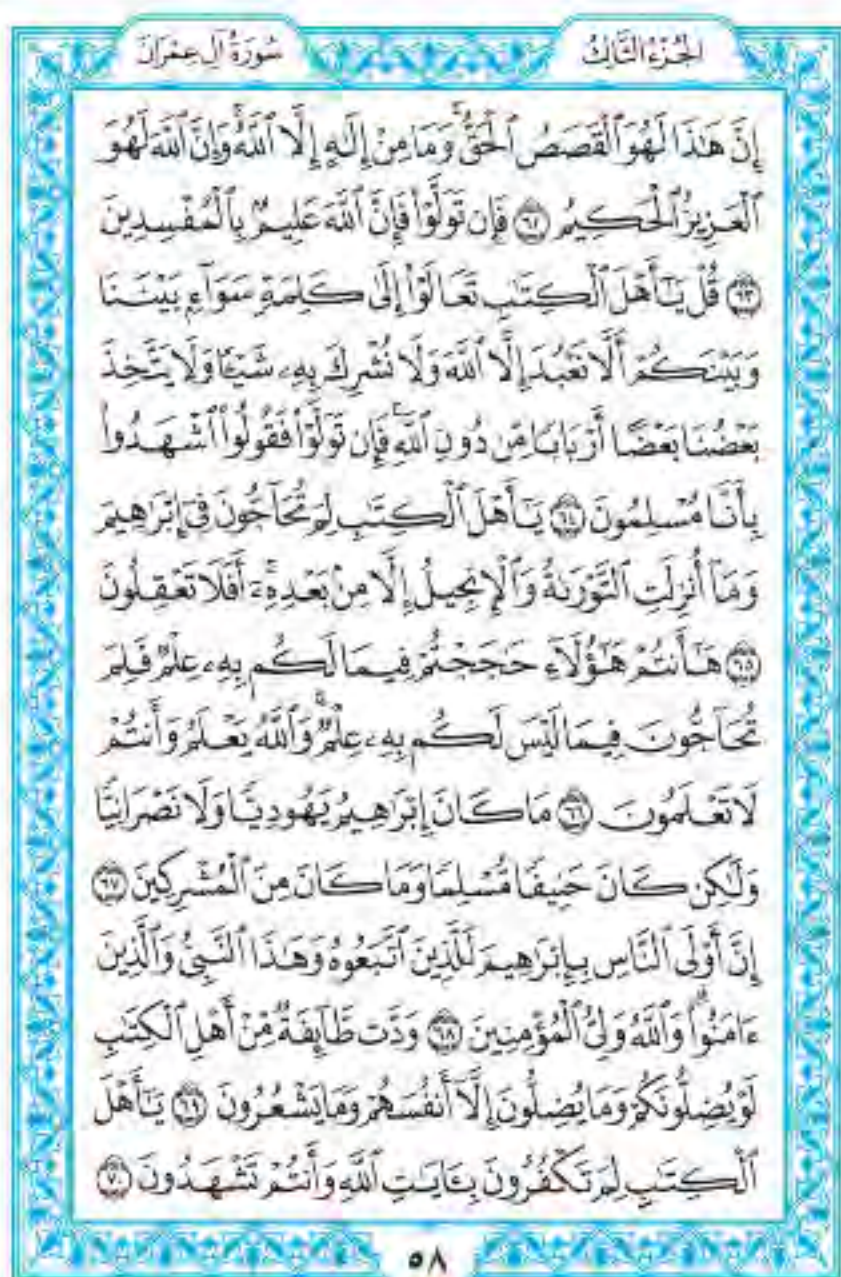 الجُزْءُ الثَّالِثُ
سُورَةُ آلِ عِمْرَانَ
إِنَّ هَٰذَا لَهُوَ ٱلْقَصَصُ ٱلْحَقُّ ۚ وَمَا مِنْ إِلَٰهٍ إِلَّا ٱللَّهُ ۚ وَإِنَّ ٱللَّهَ لَهُوَ
ٱلْعَزِيزُ ٱلْحَكِيمُ ٦٢ فَإِن تَوَلَّوْا۟ فَإِنَّ ٱللَّهَ عَلِيمٌۢ بِٱلْمُفْسِدِينَ
٦٣ قُلْ يَٰٓأَهْلَ ٱلْكِتَٰبِ تَعَالَوْا۟ إِلَىٰ كَلِمَةٍ سَوَآءٍۭ بَيْنَنَا
وَبَيْنَكُمْ أَلَّا نَعْبُدَ إِلَّا ٱللَّهَ وَلَا نُشْرِكَ بِهِۦ شَيْـًٔا وَلَا يَتَّخِذَ
بَعْضُنَا بَعْضًا أَرْبَابًا مِّن دُونِ ٱللَّهِ ۚ فَإِن تَوَلَّوْا۟ فَقُولُوا۟ ٱشْهَدُوا۟
بِأَنَّا مُسْلِمُونَ ٦٤ يَٰٓأَهْلَ ٱلْكِتَٰبِ لِمَ تُحَآجُّونَ فِىٓ إِبْرَٰهِيمَ
وَمَآ أُنزِلَتِ ٱلتَّوْرَىٰةُ وَٱلْإِنجِيلُ إِلَّا مِنۢ بَعْدِهِۦٓ ۚ أَفَلَا تَعْقِلُونَ
٦٥ هَٰٓأَنتُمْ هَٰٓؤُلَآءِ حَٰجَجْتُمْ فِيمَا لَكُم بِهِۦ عِلْمٌ فَلِمَ
تُحَآجُّونَ فِيمَا لَيْسَ لَكُم بِهِۦ عِلْمٌ ۚ وَٱللَّهُ يَعْلَمُ وَأَنتُمْ
لَا تَعْلَمُونَ ٦٦ مَا كَانَ إِبْرَٰهِيمُ يَهُودِيًّا وَلَا نَصْرَانِيًّا
وَلَٰكِن كَانَ حَنِيفًا مُّسْلِمًا وَمَا كَانَ مِنَ ٱلْمُشْرِكِينَ ٦٧
إِنَّ أَوْلَى ٱلنَّاسِ بِإِبْرَٰهِيمَ لَلَّذِينَ ٱتَّبَعُوهُ وَهَٰذَا ٱلنَّبِىُّ وَٱلَّذِينَ
ءَامَنُوا۟ ۗ وَٱللَّهُ وَلِىُّ ٱلْمُؤْمِنِينَ ٦٨ وَدَّت طَّآئِفَةٌ مِّنْ أَهْلِ ٱلْكِتَٰبِ
لَوْ يُضِلُّونَكُمْ وَمَا يُضِلُّونَ إِلَّآ أَنفُسَهُمْ وَمَا يَشْعُرُونَ ٦٩ يَٰٓأَهْلَ
ٱلْكِتَٰبِ لِمَ تَكْفُرُونَ بِـَٔايَٰتِ ٱللَّهِ وَأَنتُمْ تَشْهَدُونَ ٧٠
٥٨